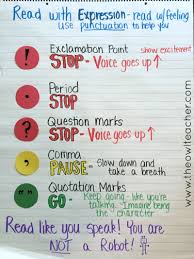 Read with Expression - read w/feeling
USE punctuation to help you
! Exclamation Point show excitement
STOP - Voice goes up ↑
. Period
STOP
? Question marks
STOP - Voice goes up ↑
, Comma
PAUSE - Slow down and
take a breath
" Quotation Marks
GO - Keep going - like you're
talking - Imagine being
the character
Read like you speak! You are
NOT a Robot!
www.theowlteacher.com